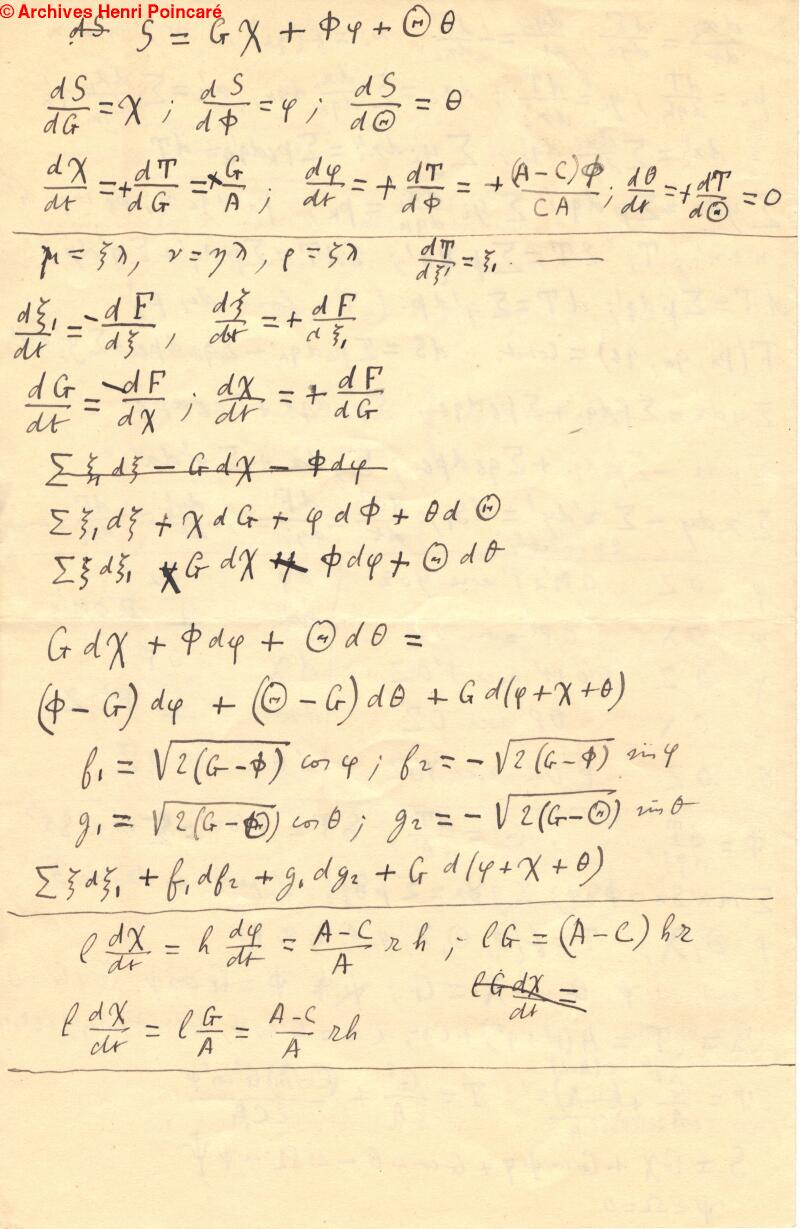 © Archives Henri Poincaré
dS S = Gχ + Φφ + Θθ
dS/dG = χ ; dS/dΦ = φ ; dS/dΘ = θ
dχ/dt = + dT/dG = × G/A ; dφ/dt = + dT/dΦ = + (A-C)Φ/CA ; dθ/dt = + dT/dΘ = 0
μ = ξλ, ν = ηλ, ρ = ζλ dT/dξ' = ξ₁
dξ₁/dt = - dF/dξ , dξ/dt = + dF/dξ₁
dG/dt = - dF/dχ ; dχ/dt = + dF/dG
Σ ξ₁dξ - Gdχ - Φdφ
Σ ξ₁dξ + χdG + φdΦ + θdΘ
Σ ξdξ₁ + Gdχ + Φdφ + Θdθ
Gdχ + Φdφ + Θdθ =
(Φ-G)dφ + (Θ-G)dθ + Gd(φ+χ+θ)
f₁ = √2(G-Φ) cosφ ; f₂ = -√2(G-Φ) sinφ
g₁ = √2(G-Θ) cosθ ; g₂ = -√2(G-Θ) sinθ
Σ ξdξ₁ + f₁df₂ + g₁dg₂ + Gd(φ+χ+θ)
l dχ/dt = h dφ/dt = A-C/A rh ; lG = (A-C)hr
lG dχ/dt =
l dχ/dt = l G/A = A-C/A rh